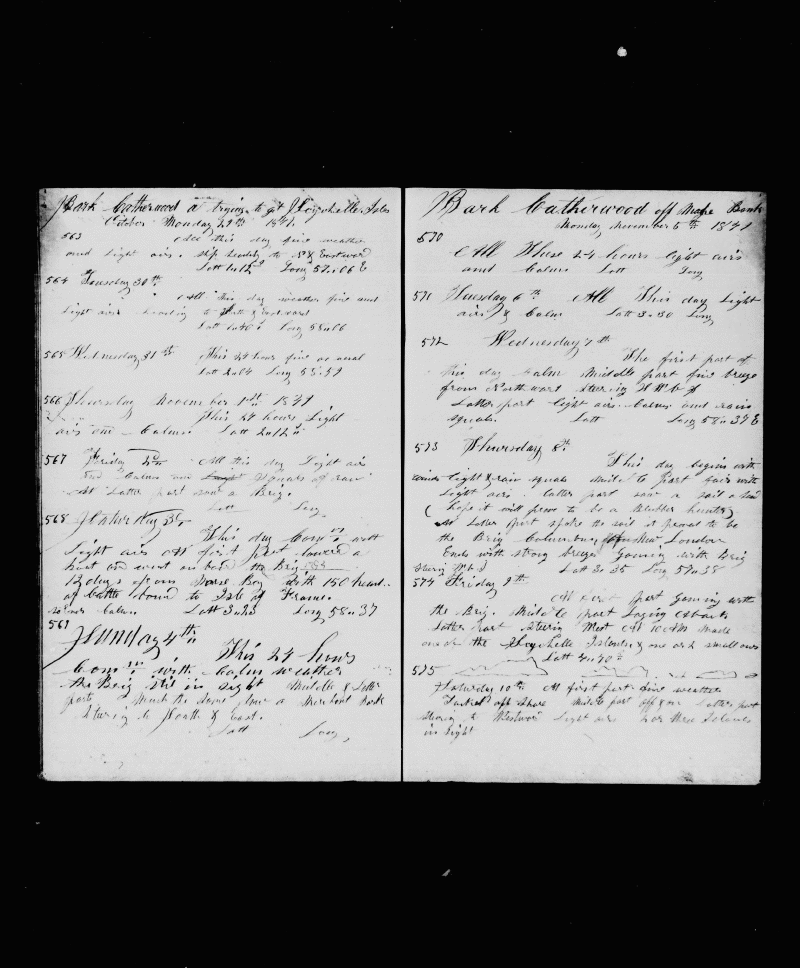 Bark Catherwood a trying to get Isles
October Monday 29th 1849
563 All this day fine weather
and light airs. Ship heading to N & Eastward
Latt Long 57..06 E
564 Tuesday 30th
All this day weather fine and
light airs heading to & Eastward
Latt Long 58..06
565 Wednesday 31st This 24 hours fine as usual
Latt 2..04 Long 58..59
566 Thursday November 1st 1849
This 24 hours Light
airs and Calms. Latt 2..12
567 Friday 2nd All this day Light airs
and Calms and Squals of rain
At Latter part saw a Brig.
Latt Long
568 Saturday 3d
This day Coms with
Light airs At first part lowerd a
boat and went on board the Brig
12 days from Bay with 150 head..
of Cattle bound to Isle of France.
Calms. Latt 3..23 Long 58..37
569
Sunday 4th
This 24 hours
Coms with Calm weather
the Brig still in sight Middle & Latter
part Much the same saw a Merchant Bark
Stering to South & East.
Latt Long
Bark Catherwood off Mahe Bank
Monday November 5th 1849
570
All These 24 hours light airs
and Calms Latt Long
571 Tuesday 6th All This day Light
airs & Calm Latt 3..30 Long
572 Wednesday 7th
The first part of
this day calm Middle part fine breeze
from Northward Stering
Latter part light airs. Calms and rain
squals. Latt Long 58..37 E
573 Thursday 8th
This day begins with
light & rain squals Middle part fair with
Light airs. latter part saw a sail a head
(hope it will prove to be a blubber hunter)
At Latter part spoke the sail it proved to be
the Brig Columbus, of New London
Ends with strong breeze Gaming with Brig
Stering W b S Latt 3..35 Long 57..38
574 Friday 9th
At first part Gaming with
the Brig. Middle part Laying Aback
Latter part Stering West At 10 AM Made
one of the Islands & one or 2 small ones
Latt 4..40
575
Saturday 10th At first part fine weather
Tacked off Shore Middle part off & on Latter part
Stering to Westward Light airs two or three Islands
in sight